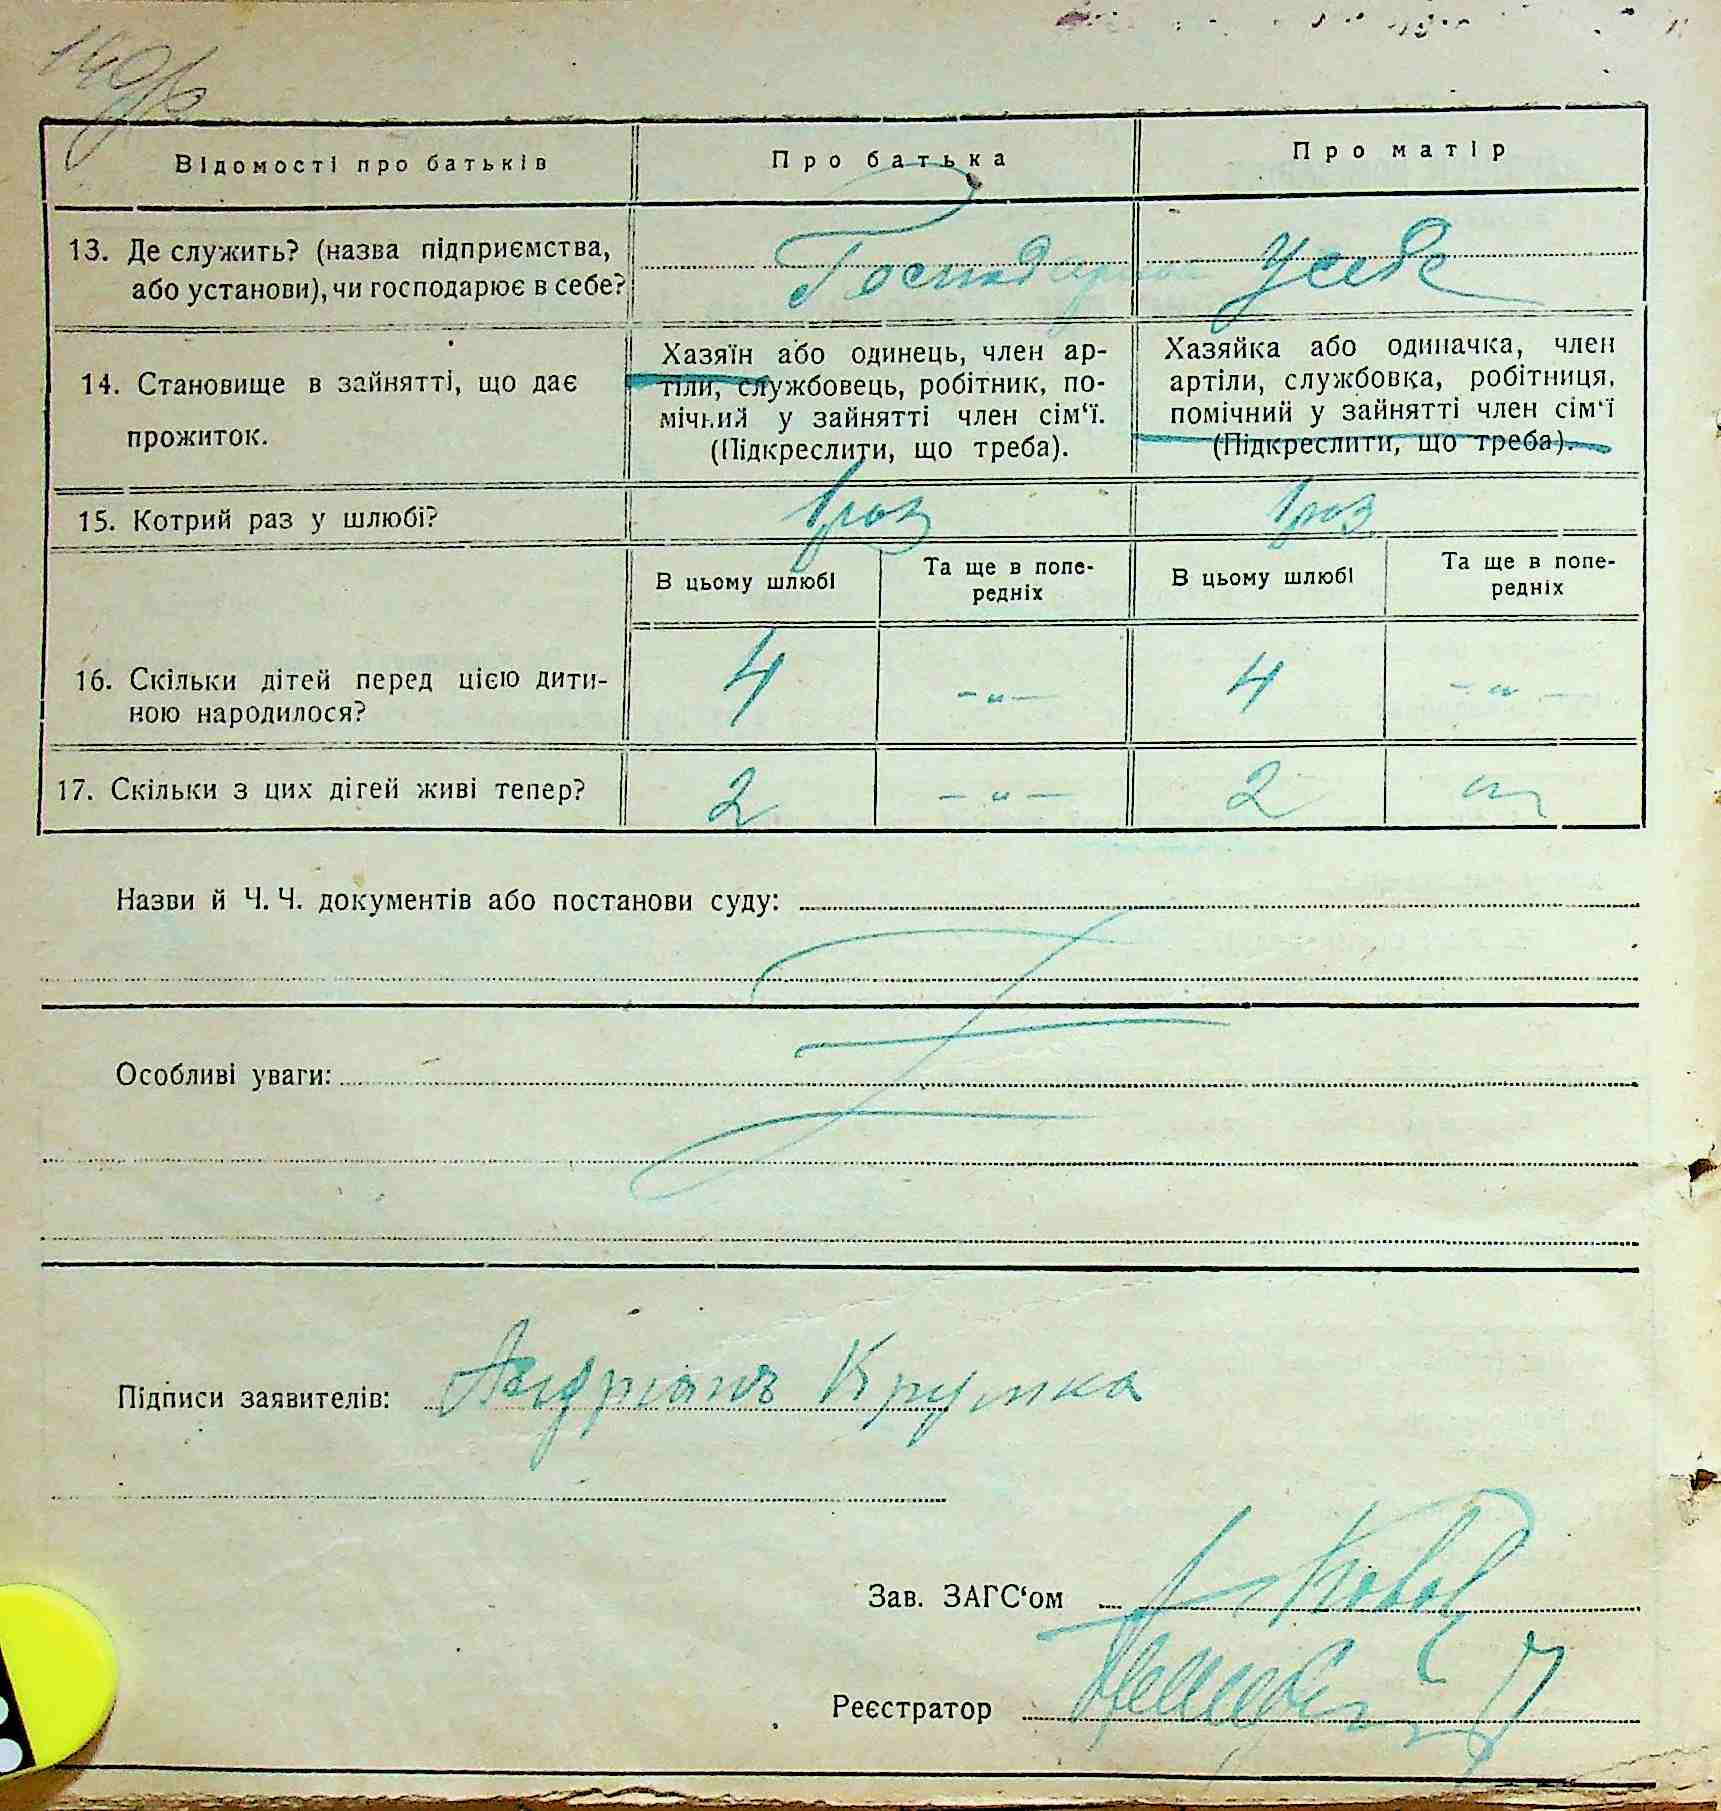 Відомості про батьків
Про батька
Про матір
13. Де служить? (назва підприємства, або установи), чи господарює в себе?
Господарює усебе
14. Становище в зайнятті, що дає прожиток.
Хазяїн або одинець, член ар-
тіли, службовець, робітник, по-
мічний у зайнятті член сім‘ї.
(Підкреслити, що треба).
Хазяйка або одиначка, член
артіли, службовка, робітниця,
помічний у зайнятті член сім‘ї
(Підкреслити, що треба).
15. Котрий раз у шлюбі?
1 раз
1 раз
В цьому шлюбі
Та ще в попе-
редніх
В цьому шлюбі
Та ще в попе-
редніх
16. Скільки дітей перед цією дити-
ною народилося?
4
– „ –
4
– „ –
17. Скільки з цих дітей живі тепер?
2
– „ –
2
„
Назви й Ч. Ч. документів або постанови суду:
Особливі уваги:
Підписи заявителів: Андріанъ Крумка
Зав. ЗАГС‘ом
Реєстратор